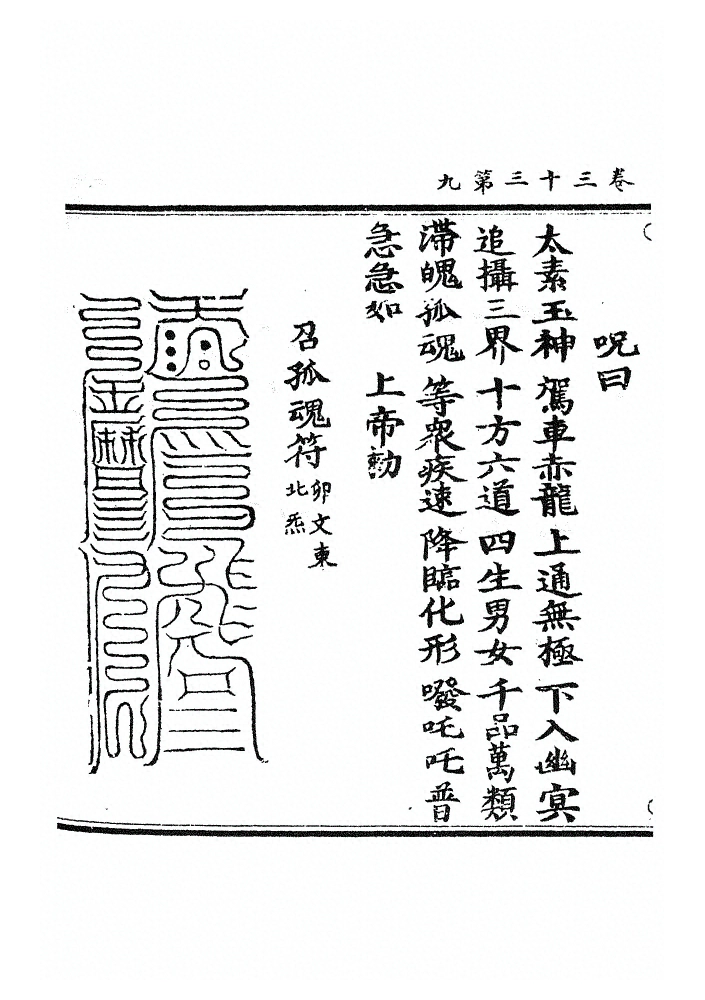 卷三十三第九
呪曰
太素玉神 駕車赤龍 上通無極 下入幽冥
追攝三界 十方六道 四生男女 千品萬類
滯魄孤魂 等衆疾速 降臨化形 㗶吒吒普
急急如 上帝勑
召孤魂符 卯文東北炁